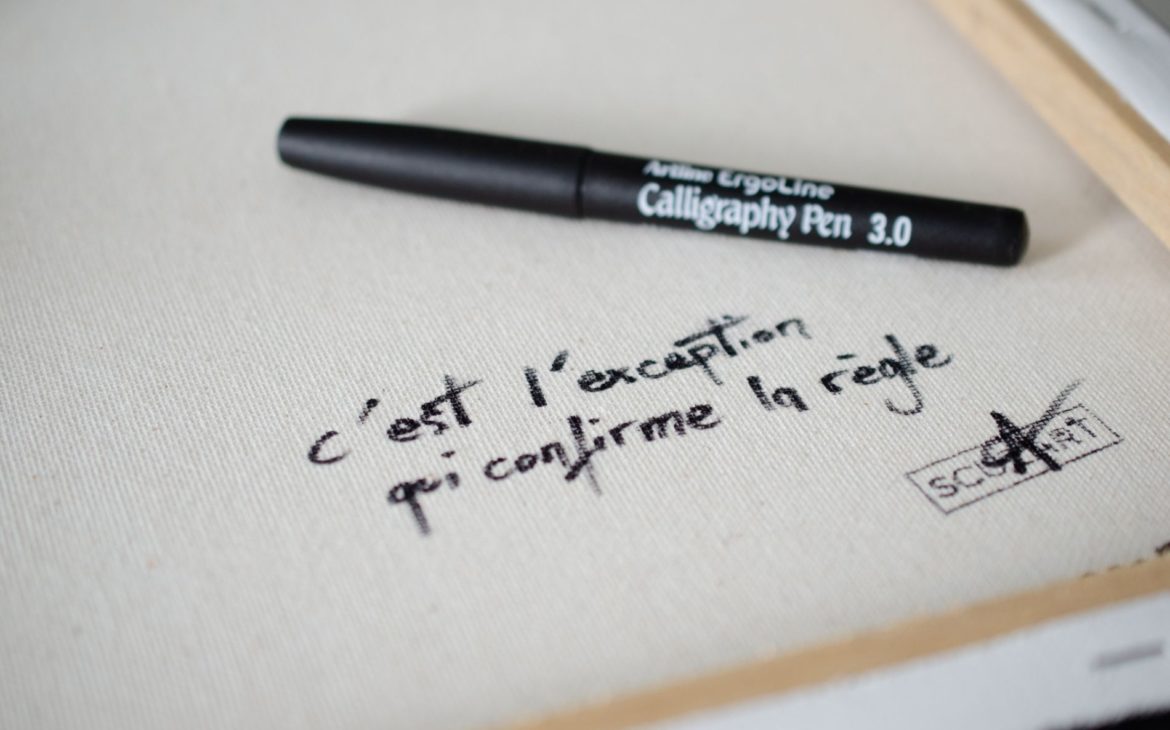 Artline ErgoLine
Calligraphy Pen 3.0
c'est l'exception
qui confirme la règle